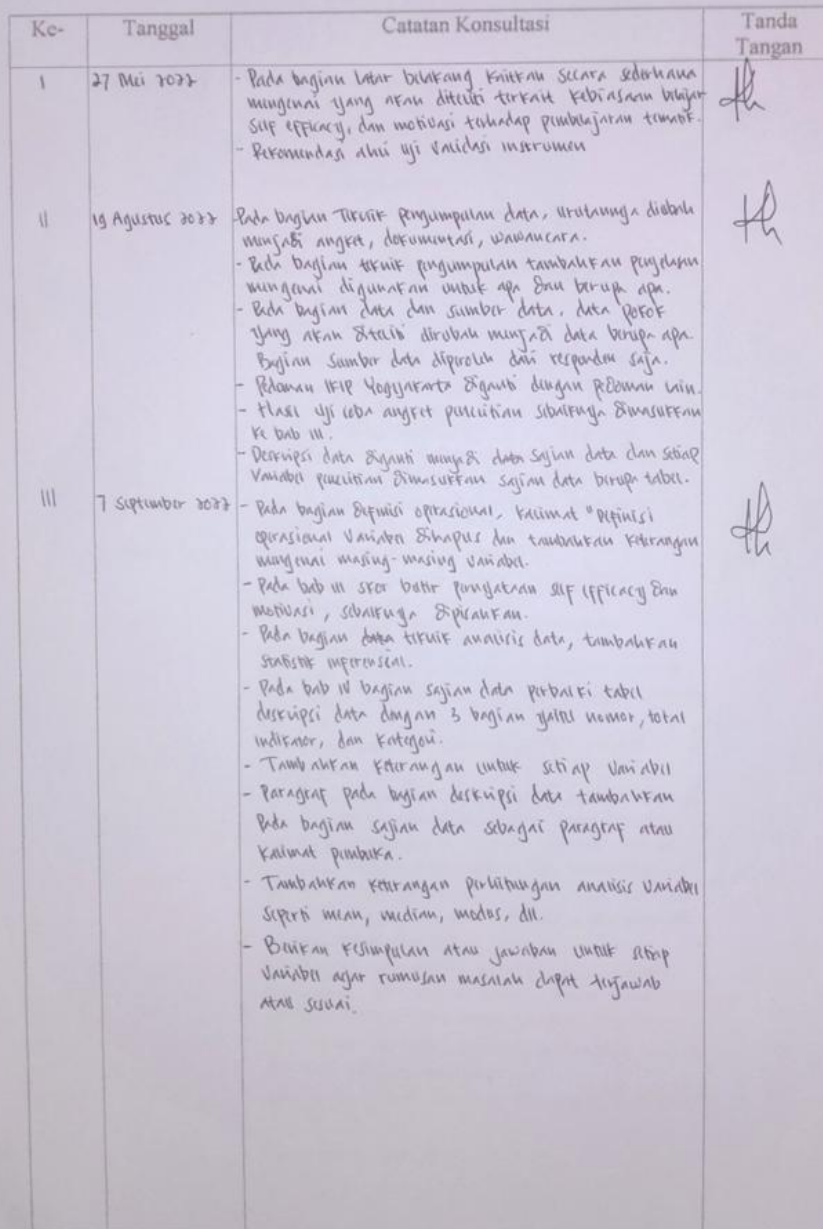 Ke-
Tanggal
Catatan Konsultasi
Tanda
Tangan
I
27 Mei 2022
- Pada bagian latar belakang kaitkan secara sederhana
mengenai yang akan diteliti terkait kebiasaan belajar
self efficacy, dan motivasi terhadap pembelajaran tematik.
- Rekomendasi ahli uji validasi instrumen
II
19 Agustus 2022
- Pada bagian Teknik pengumpulan data, urutannya diubah
menjadi angket, dokumentasi, wawancara.
- Pada bagian teknik pengumpulan tambahkan penjelasan
mengenai digunakan untuk apa dan berupa apa.
- Pada bagian data dan sumber data, data pokok
yang akan diteliti dirubah menjadi data berupa apa.
Bagian sumber data diperoleh dari responden saja.
- Pedoman IKIP Yogyakarta diganti dengan pedoman lain.
- Hasil uji coba angket penelitian sebaiknya dimasukkan
ke bab III.
- Deskripsi data diganti menjadi data sajian data dan setiap
Variabel penelitian dimasukkan sajian data berupa tabel.
III
7 September 2022
- Pada bagian definisi oprasional, kalimat "Definisi
oprasional variabel dihapus dan tambahkan keterangan
mengenai masing-masing variabel.
- Pada bab III skor butir pernyataan self efficacy dan
motivasi, sebaiknya dipisahkan.
- Pada bagian data teknik analisis data, tambahkan
Statistik inferensial.
- Pada bab IV bagian sajian data perbaiki tabel
deskripsi data dengan 3 bagian yaitu nomor, total
indikator, dan kategori.
- Tambahkan keterangan untuk setiap variabel
- Paragraf pada bagian deskripsi data tambahkan
Pada bagian sajian data sebagai paragraf atau
kalimat pembuka.
- Tambahkan keterangan perhitungan analisis variabel
seperti mean, median, modus, dll.
- Berikan kesimpulan atau jawaban untuk setiap
variabel agar rumusan masalah dapat terjawab
atau sesuai.